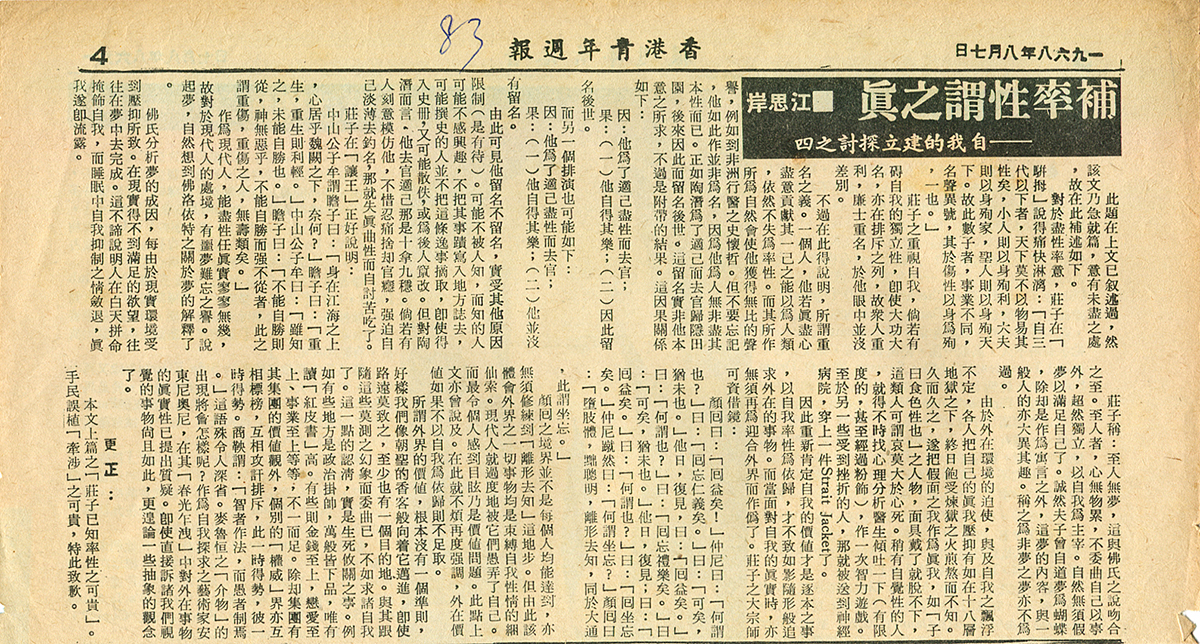 一九六八年八月七日
香港青年週報
4
83
補率性謂之眞
■江思岸
——自我的建立探討之四
此題在上文已叙述過，然
該文乃急就篇，意有未盡之處
，故在此補述如下。
對於盡性率意，莊子在「
駢拇」說得痛快淋漓：「自三
代以下者，天下莫不以物易其
性矣，小人則以身殉利，大夫
則以身殉家，聖人則以身殉天
下。故此數子者，事業不同，
名聲異號，其於傷性以身爲殉
，一也。」
莊子之重視自我，倘若有
碍自我的獨立性，卽使大功大
名，亦在排斥之列，故衆人重
利，廉士重名，於他眼中並沒
差別。
不過在此得說明，所謂重
名之義。一個人，他若眞盡心
盡意貢獻其一己之能以爲人類
，依然不失爲率性。而其所作
所爲自然會使他獲得無比的聲
譽，例如到非洲行醫之史懷哲。但不要忘記
，他如此作並非爲名，因爲他爲人無非盡其
本性而已。正如陶潛爲了適己而去官歸隱田
園，後來因此而留名後世。這留名實非他本
意之所求，不過是附帶的結果。這因果關係
如下：
因：他爲了適己盡性而去官；
果：（一）他自得其樂；（二）因此留
名後世。
而另一個排演也可能如下：
因：他爲了適己盡性而去官；
果：（一）他自得其樂；（二）他並沒
有留名。
由此可見留名不留名，實受其他原因
限制（是有待）。可能不被人知，而知的人
可能不感興趣，不把其事蹟寫入地方誌去，
可能撰史的人並不把這條逸事摘取，卽使得
入史册，又可能散佚，或爲後人竄改。但對陶
潛而言，他去官適己那是十拿九穩。倘若有
人刻意模仿他，不惜忍痛捨却官癮，强迫自
己淡薄去釣名，那就失眞曲性而自討苦吃了。
莊子在「讓王」正好說明：
中山公子牟謂瞻子曰：「身在江海之上
，心居乎魏闕之下，奈何？」瞻子曰：「重
生，重生則利輕。」中山公子牟曰：「雖知
之，未能自勝也。」瞻子曰：「不能自勝則
從，神無惡乎，不能自勝而强不從者，此之
謂重傷，重傷之人，無壽類矣。」
作爲現代人，能盡性任眞實寥寥無幾，
故對於現代人的處境，有噩夢難忘之譽。說
起夢，自然想到佛洛依特之關於夢的解釋了
。
佛氏分析夢的成因，每由於現實環境受
到壓抑所致。在現實得不到滿足的欲望，往
往在夢中去完成。這不諦說明人在白天拼命
掩飾自我，而睡眠中自我抑制之情斂退，眞
我遂卽流露。
莊子稱：至人無夢，這與佛氏之說吻合
之至。至人者，心無物累，不委曲自己以奉
外，超然獨立，以自我爲主宰。自然無須假
夢以滿足自己了。誠然莊子曾自道夢爲蝴蝶
，除却是作爲寓言之外，這夢的內容，與一
般人的亦大異其趣。稱之爲非夢之夢亦不爲
過。
由於外在環境的迫使，與及自我之飄浮
不定，各人把自己的眞我壓抑有如在十八層
地獄之下，終日飽受煉獄之火煎熬而不知。
久而久之，遂把假面之我作爲眞我，如「子
曰食色性也」之人物，面具戴了就脫不下，
這類人可謂哀莫大於心死。稍有自覺性的人
，就得不時找心理分析醫生傾吐一下（有限
度的，甚至經過粉飾），作一次智力遊戲。
至於另一些受到挫折的人，那就被送到神經
病院，穿上一件Strait Jacket了。
因此重新肯定自我的價值才是逐本之事
，以自我率性爲依歸，才不致如影隨形般追
求外在的事物。而當面對自我的眞實時，亦
無須再爲迎合外界而作僞了。莊子之大宗師
可資借鏡：
顏回曰：「囘益矣！」仲尼曰：「何謂
也？」曰：「囘忘仁義矣。」曰：「可矣，
猶未也。」他日，復見，曰：「囘益矣。」
曰：「何謂也？」曰：「囘忘禮樂矣。」
曰：「可矣，猶未也。」他日，復見；曰：
囘益矣。」曰：「何謂也？」曰：「囘坐忘
矣。」仲尼蹴然曰：「何謂坐忘？」顏囘曰
：「墮肢體，黜聰明，離形去知，同於大通
，此謂坐忘。」
顏囘之境界並不是每個人均能達到，亦
無須修練到「離形去知」那地步，但由此該
體會外界之一切事物均是束縛自我性情的綑
仙索。現代人就過度地被它們愚弄了自己。
而最令個人感到目眩乃是價値問題。此點上
文亦曾說及。在此就不煩再度强調，外在價
値如果不以自我爲依歸則不足取。
所謂外界的價値，根本沒有一個準則，
好樣我們像朝聖的香客般向着它邁進，卽使
路途莫致之，至少也有一個目的地。與其跟
隨這些莫測之幻象而委曲己，不如求諸自我
了。這一點的認清，實是生死攸關之事。例
如有些地方是政治掛帥，萬般皆下品，唯有
讀「紅皮書」高。有些則金錢至上，戀愛至
上、事業至上等等，不一而足。除却集團有
其集團的價値觀外，個別的「權威」界亦互
相標榜，互相攻訐排斥，此一時得勢，彼一
時得勢。商鞅謂：「智者作法，而愚者制焉
。」這語殊令人深省。麥魯恒之「介物」的
出現將會怎樣呢？作爲自我探求之藝術家安
東尼奧尼，在其「春光乍洩」中對外在事物
的眞實性已提出質疑。卽使直接訴諸我們視
覺的事物尙且如此，更遑論一些抽象的觀念
了。
更正：
本文上篇之「莊子已知率性之可貴」。
手民誤植「牽涉」之可貴，特此致歉。